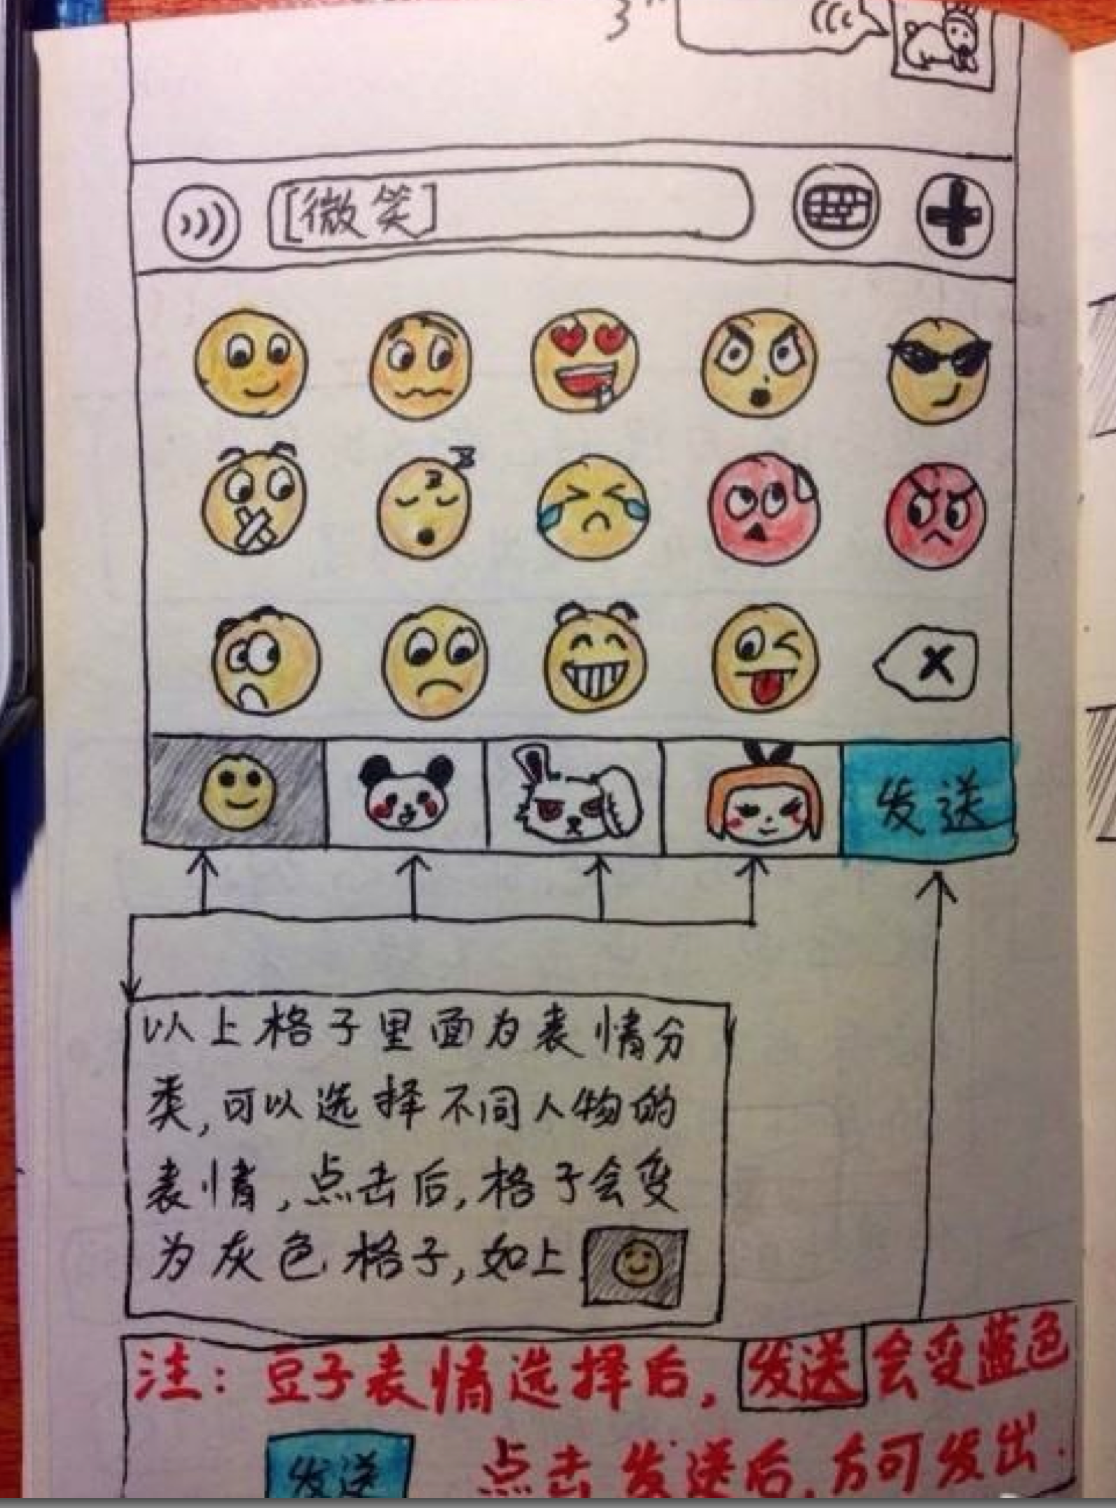 3"
[微笑]
发送
以上格子里面为表情分
类,可以选择不同人物的
表情,点击后,格子会变
为灰色格子,如上
注:豆子表情选择后,发送会变蓝色
发送 点击发送后,方可发出.